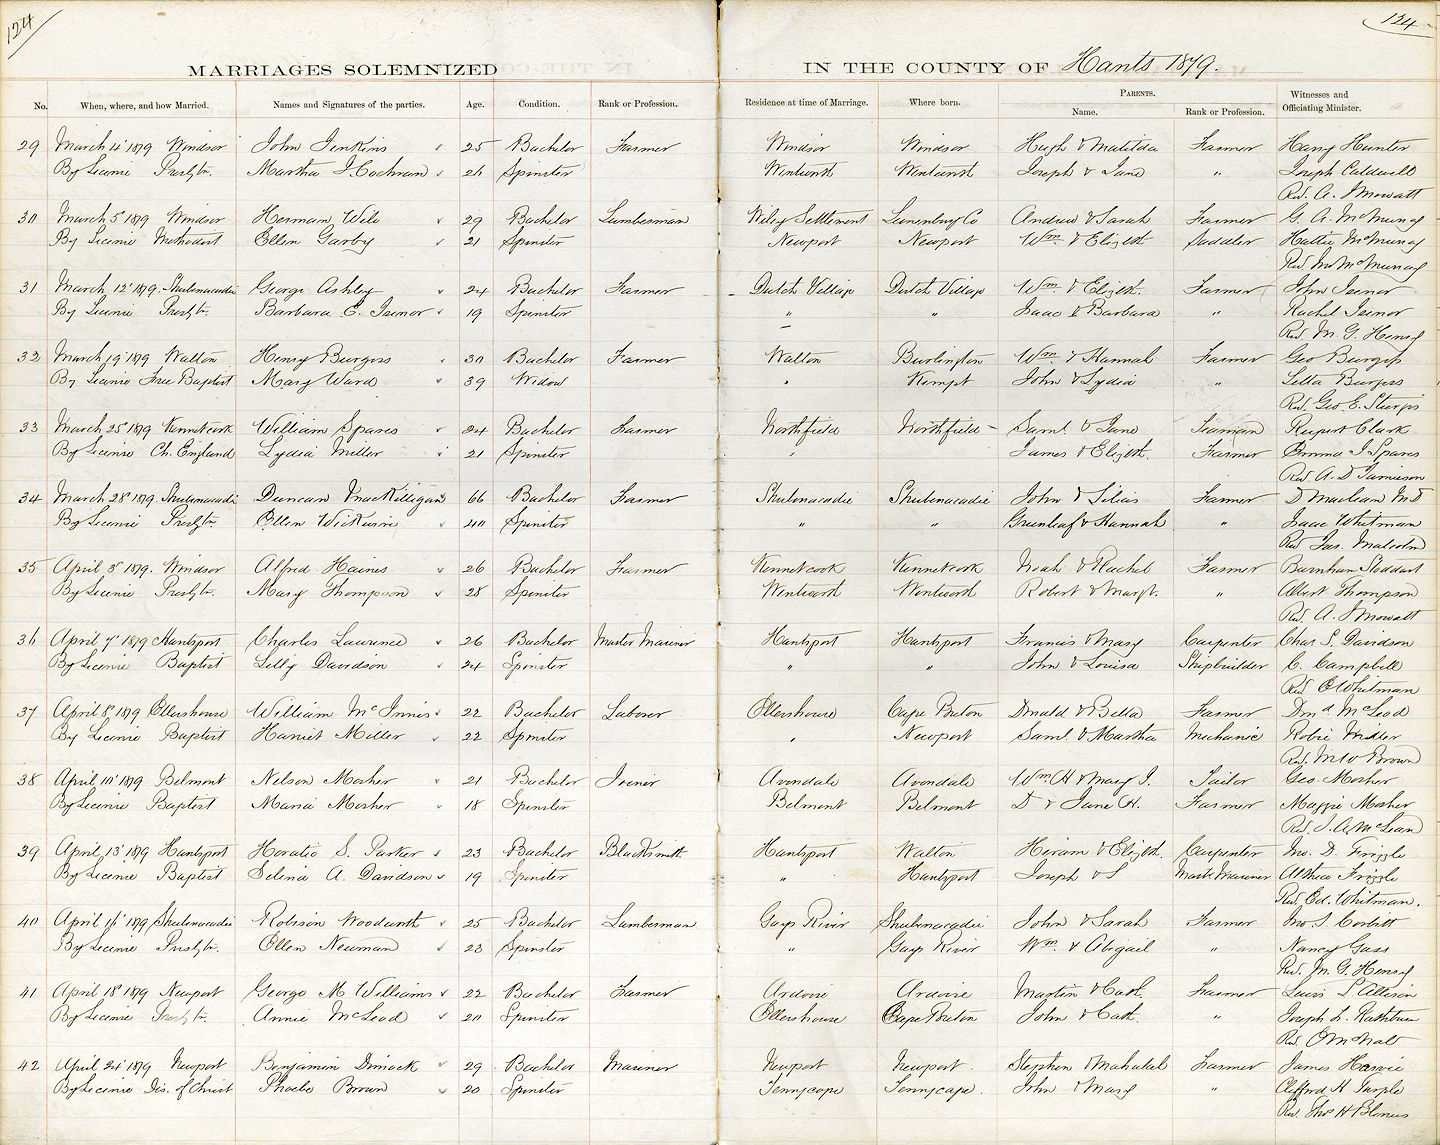 124
124
MARRIAGES SOLEMNIZED IN THE COUNTY OF Hants 1879.
No. When, where, and how Married. Names and Signatures of the parties. Age. Condition. Rank or Profession. Residence at time of Marriage. Where born. PARENTS. Name. Rank or Profession. Witnesses and Officiating Minister.
29 March 4 1879 Windsor John Jenkins 25 Bachelor Farmer Windsor Windsor Hugh & Matilda Farmer Harry Hunter
By Licence Presbytr. Martha J. Cochran 26 Spinster Wentworth Wentworth Joseph & Jane " Joseph Caldwell
Rev. A. J. Mowatt
30 March 5 1879 Windsor Herman Wile 29 Bachelor Lumberman Wiley Settlement Lunenburg Co Andrew & Sarah Farmer G. A. McMurray
By Licence Methodist Ellen Garby 21 Spinster Newport Newport Wm. & Elizth. Saddler Hattie McMurray
Rev. McMurray
31 March 12 1879. Shubenacadie George Ashley 24 Bachelor Farmer Dutch Village Dutch Village Wm. & Elizth. Farmer John Isenor
By Licence Presbytr. Barbara E. Isenor 19 Spinster " " Isaac & Barbara " Rachel Isenor
Rev. M. G. Henry
32 March 19 1879 Walton Henry Burgess 30 Bachelor Farmer Walton Burlington Wm. & Hannah Farmer Geo Burgess
By Licence Free Baptist Mary Ward 39 Widow " Kempt John & Lydia " Letta Burgess
Rev. Geo. E. Sturgis
33 March 25 1879 Kennetcook William Spares 24 Bachelor Farmer Northfield Northfield Saml. & Jane Seaman Rupert Clark
By Licence Ch. England Lydia Miller 21 Spinster " James & Elizth. Farmer Emma J Spares
Rev. A. D Jamieson
34 March 28 1879. Shubenacadie Duncan MacKilligan 66 Bachelor Farmer Shubenacadie Shubenacadie John & Lilias Farmer D Maclean M.D
By Licence Presbytr. Ellen McKairie 40 Spinster " " Greenleaf & Hannah " Isaac Whitman
Rev Jas. Malcolm
35 April 3 1879. Windsor Alfred Haines 26 Bachelor Farmer Kennetcook Kennetcook Noah & Rachel Farmer Burnham Stoddart
By Licence Presbytr. Mary Thompson 28 Spinster Wentworth Wentworth Robert & Margt. " Albert Thompson
Rev. A. J Mowatt
36 April 7 1879 Hantsport Charles Lawrence 26 Bachelor Master Mariner Hantsport Hantsport Francis & Mary Carpenter Chas. S. Davidson
By Licence Baptist Lelly Davidson 24 Spinster " " John & Louisa Shipbuilder C. Campbell
Rev. E Whitman
37 April 8 1879 Ellershouse William McInnis 22 Bachelor Laborer Ellershouse Cape Breton Donald & Bella Farmer Dond McLeod
By Licence Baptist Harriet Miller 22 Spinster " Newport Saml. & Martha Mechanic Robie Miller
Rev. Brown
38 April 10 1879 Belmont Nelson Mosher 21 Bachelor Joiner Avondale Avondale Wm. H & Mary J. Tailor Geo. Mosher
By Licence Baptist Maria Mosher 18 Spinster Belmont Belmont D & Jane H. Farmer Maggie Mosher
Rev. J. A McLean
39 April 13 1879 Hantsport Horatio S. Parker 23 Bachelor Blacksmith Hantsport Walton Hiram & Elizth. Carpenter Jno. D. Frizzle
By Licence Baptist Selena A. Davidson 19 Spinster " Hantsport Joseph & S Mastr Mariner Althea Frizzle
Rev. Ed. Whitman.
40 April 16 1879 Shubenacadie Robison Woodworth 25 Bachelor Lumberman Gays River Shubenacadie John & Sarah Farmer Jno. S. Corbett
By Licence Presbytr. Ellen Newman 23 Spinster " Gays River Wm. & Abigail " Nancy Gass
Rev. M. G. Henry
41 April 18 1879 Newport George M Williams 22 Bachelor Farmer Ardoise Ardoise Martin & Cath. Farmer Lewis S Allison
By Licence Presbytr. Annie McLeod 20 Spinster Ellershouse Cape Breton John & Cath. " Joseph L.
Rev. E McNab
42 April 24 1879 Newport Benjamin Dimock 29 Bachelor Mariner Newport Newport. Stephen & Mahalah Farmer James Harvie
By Licence Dis. of Christ Phoebe Brown 20 Spinster Tennycape Tennycape. John & Mary " Clifford H Purple
Rev. Thos H Blenus